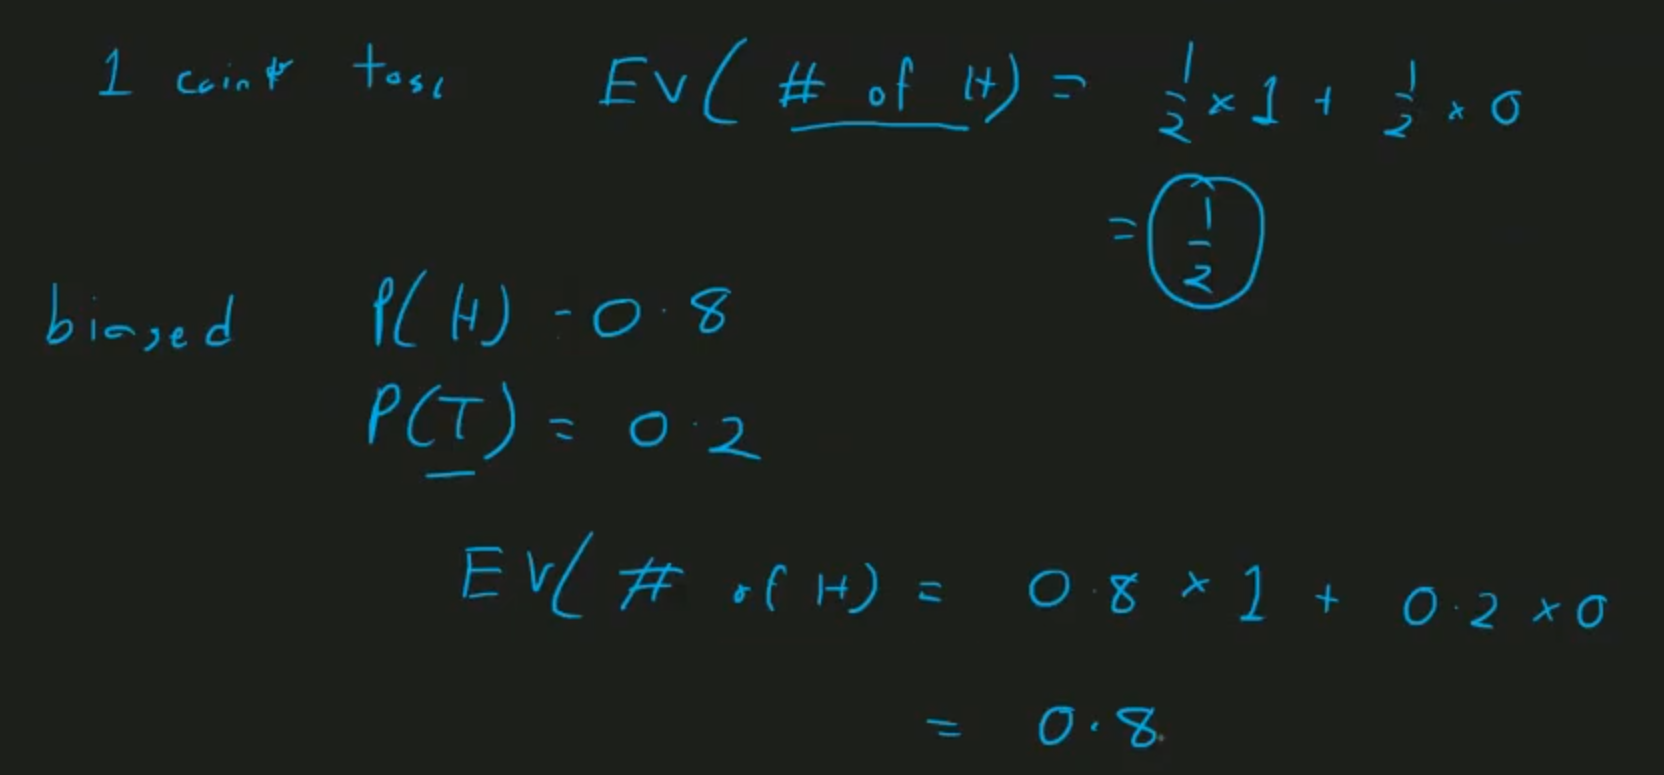 1 coin toss EV( # of H) = 1/2 × 1 + 1/2 × 0
= 1/2
biased P(H) = 0.8
P(T) = 0.2
EV( # of H) = 0.8 × 1 + 0.2 × 0
= 0.8